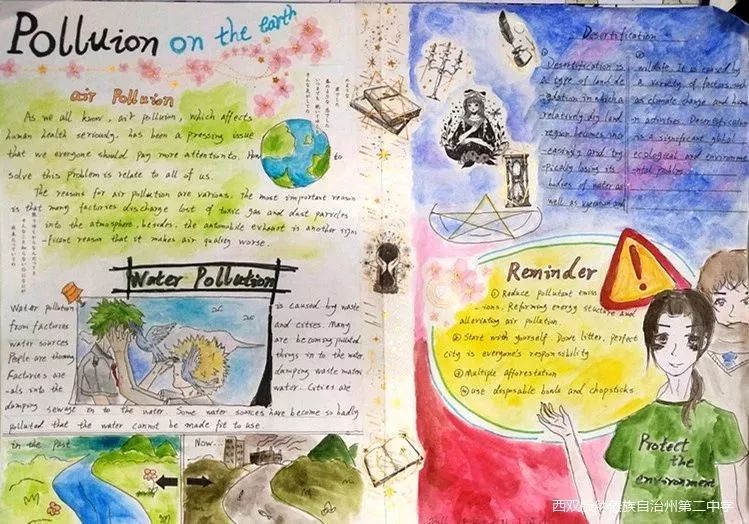 Polluion on the earth
air Polluion
As we all know, air polluion, which affects
human health seriously, has been a pressing issue
that we everyone should pay more attentionto. How to
solve this problem is relate to all of us.
The reasons for air pollution are various. The most important reason
is that many factories discharge lost of toxic gas and dust parvcles
into the atmosphere. besides, the automobile exhaust is another signi
-ficant reason that it makes air quality worse.
Water Pollution
Water pollution is caused by waste
from factories and citses. Many
water sources are becoming polluted.
Pople are throwing things in to the water
Factories are damping waste materi
-als into the water. Cities are
damping sewage in to the water. Some water sources have become so badly
polluted that the water cannot be made fit to use.
in the past
Now...
Desertification
①
Desertification is
a type of land de
gdation in which a
relatively dry land
region becomes inc
-easingly arid, typ
-pically losing its
bodies of water as
well as vegetation and
②
wildlife. It is caused by
a variety of factors, such
as climate change and huma
n activities. Desertification
is a significant global
ecological and environme
-ntal problem.
Reminder
① Reduce pollutant emiss
-ions. Reforming energy stucture and
alleviating air pollution.
② Start with yourself. Don't litter, perfect
city is everyone's responsibility
③ Multiple afforestation
④ use disposable bowls and chopsticks
Protect
the
environment
西双版纳傣族自治州第二中学